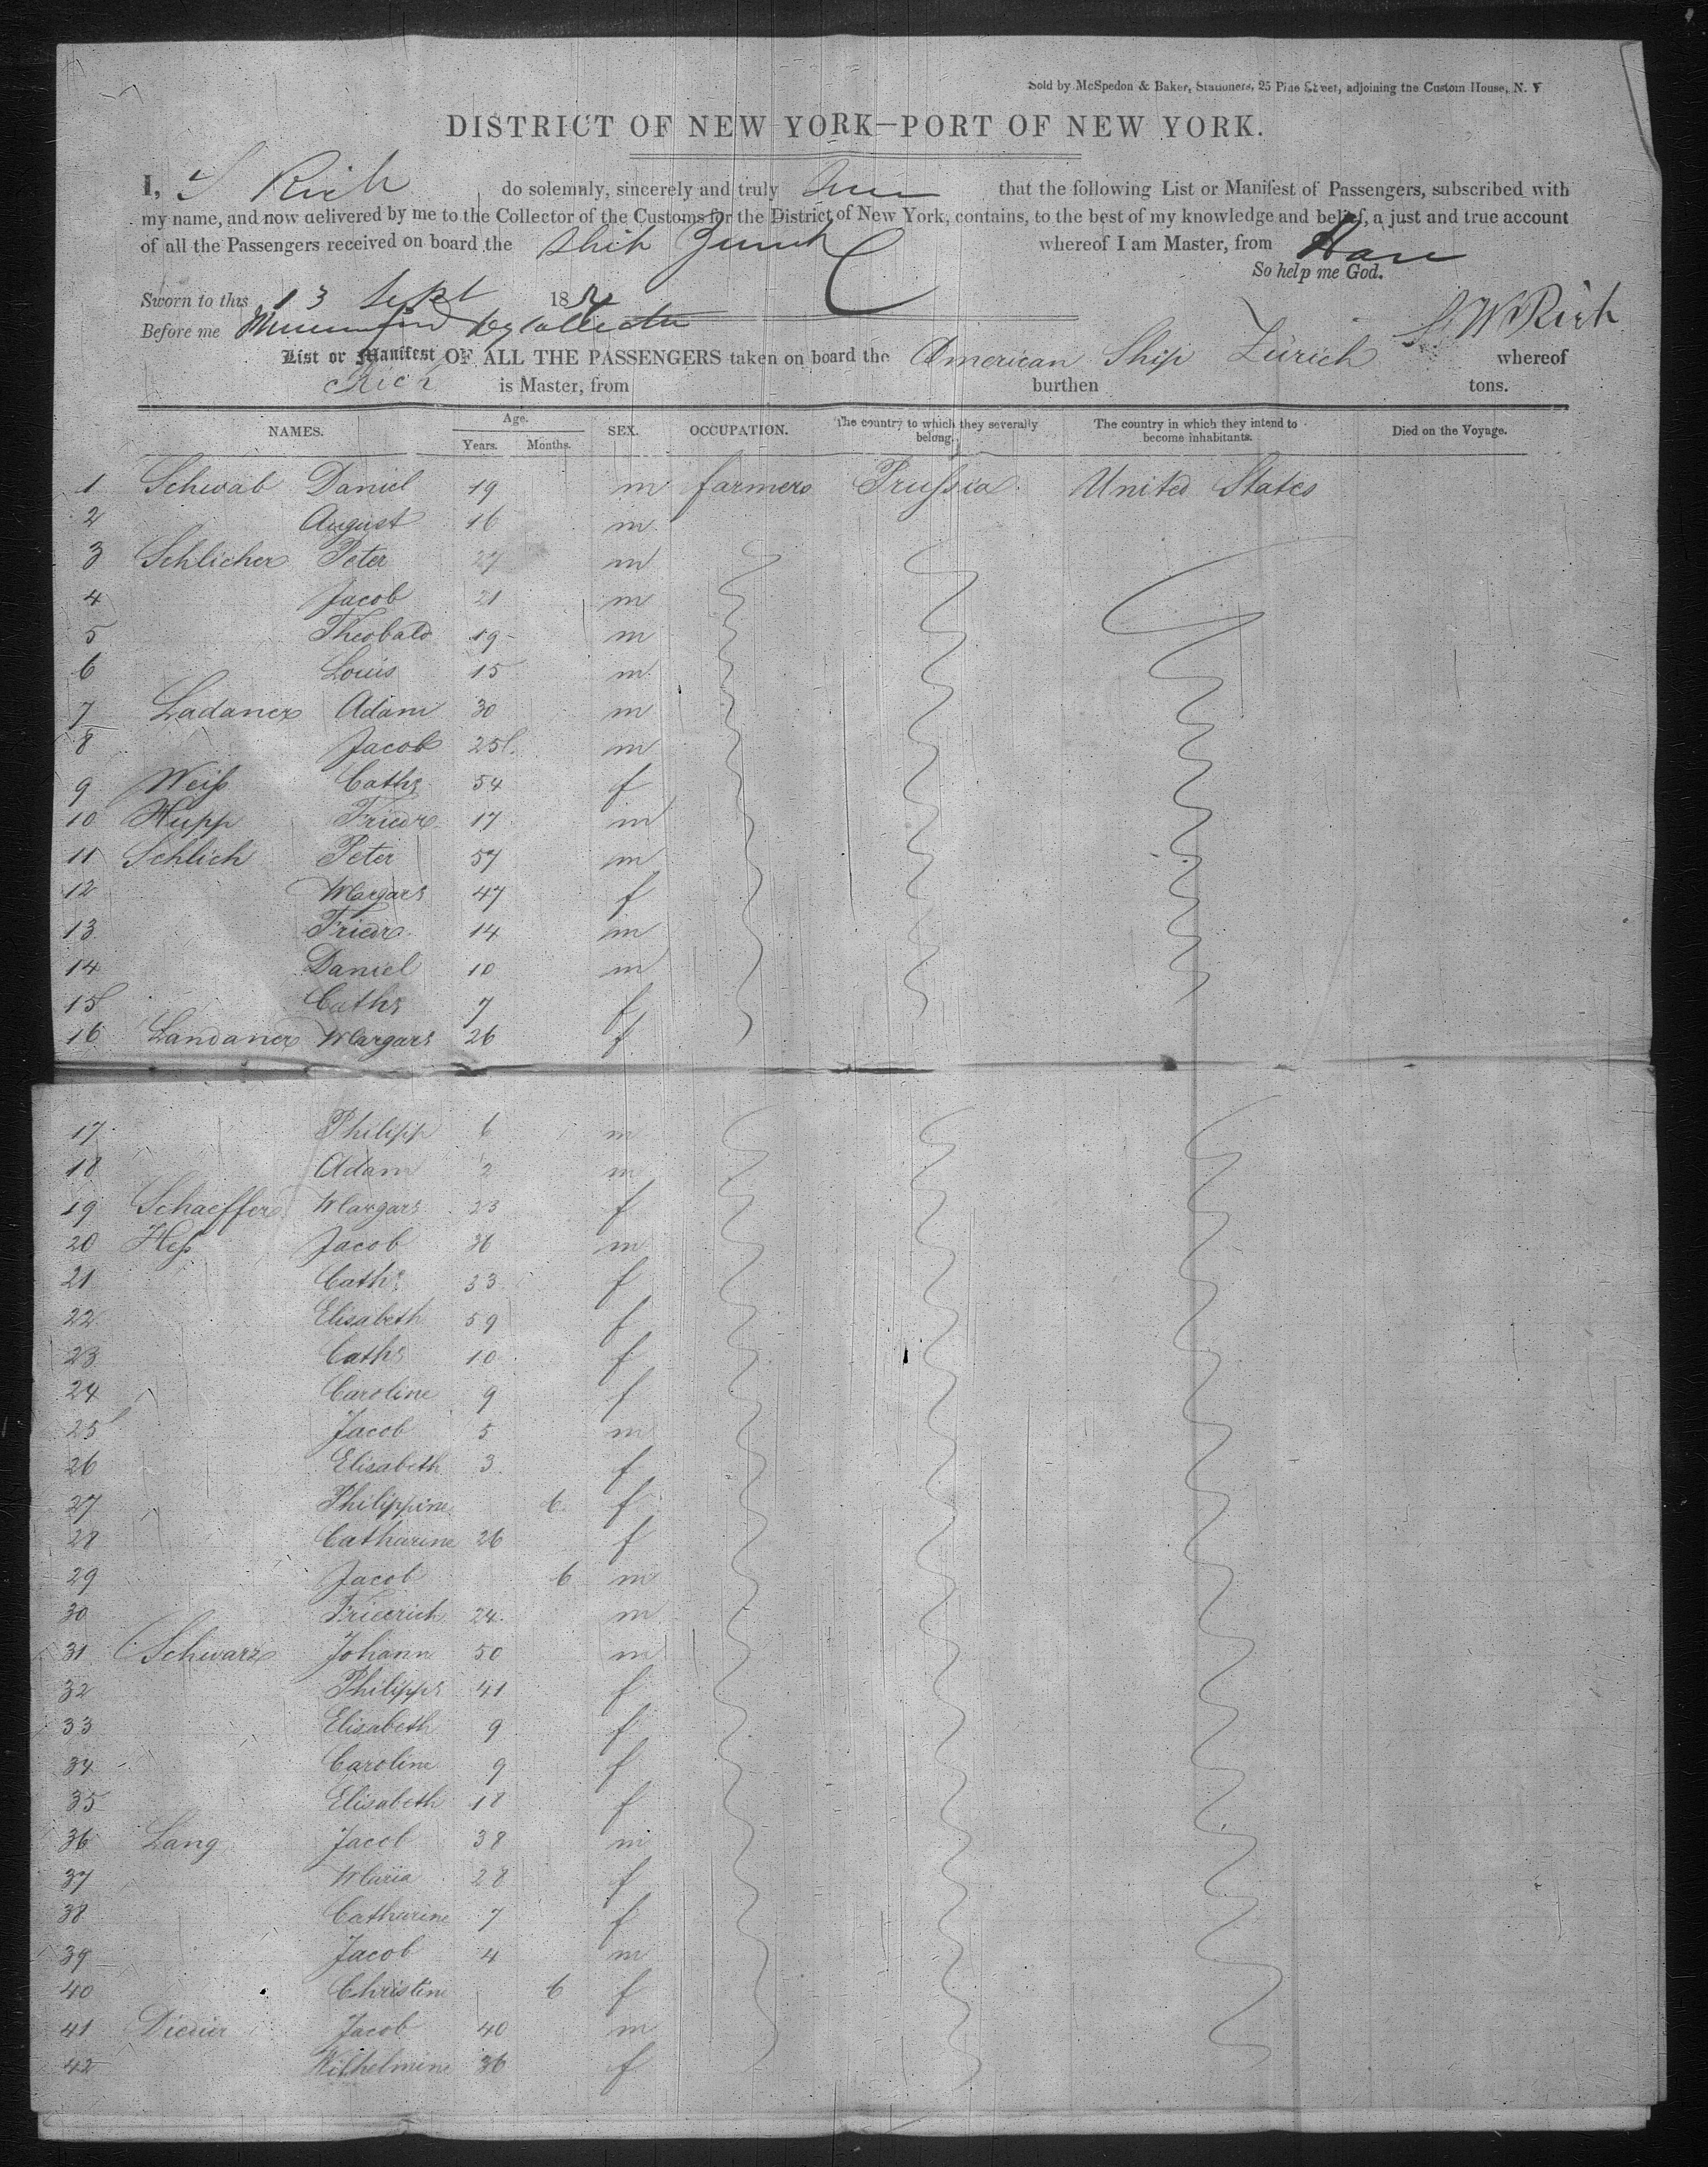 Sold by McSpedon & Baker, Stationers, 25 Pine Street, adjoining the Custom House, N. Y
DISTRICT OF NEW YORK—PORT OF NEW YORK.
I, S Rich do solemnly, sincerely and truly that the following List or Manifest of Passengers, subscribed with
my name, and now delivered by me to the Collector of the Customs for the District of New York, contains, to the best of my knowledge and belief, a just and true account
of all the Passengers received on board the Ship Zurich whereof I am Master, from Havre
So help me God.
Sworn to this 13 Sept 185
Before me S W Rich
List or Manifest OF ALL THE PASSENGERS taken on board the American Ship Zürich whereof
Rich is Master, from burthen tons.
NAMES. Age. Years. Months. SEX. OCCUPATION. The country to which they severally belong. The country in which they intend to become inhabitants. Died on the Voyage.
1 Schwab Daniel 19 m farmers Prussia United States
2 August 16 m
3 Schlicher Peter 27 m
4 Jacob 21 m
5 Theobald 19 m
6 Louis 15 m
7 Ladaner Adam 30 m
8 Jacob 25 m
9 Weiss Cathe 54 f
10 Hupp Friedr 17 m
11 Schlich Peter 57 m
12 Margare 47 f
13 Friedr 14 m
14 Daniel 10 m
15 Cathe 7 f
16 Landaner Margare 26 f
17 Philipp 6 m
18 Adam 2 m
19 Schaeffer Margare 23 f
20 Hess Jacob 36 m
21 Cathe 33 f
22 Elisabeth 59 f
23 Cathe 10 f
24 Caroline 9 f
25 Jacob 5 m
26 Elisabeth 3 f
27 Philippine 6 f
28 Catharine 26 f
29 Jacob 6 m
30 Friedrich 24 m
31 Schwarz Johann 50 m
32 Philippe 41 f
33 Elisabeth 9 f
34 Caroline 9 f
35 Elisabeth 18 f
36 Lang Jacob 38 m
37 Maria 28 f
38 Catharine 7 f
39 Jacob 4 m
40 Christine 6 f
41 Jacob 40 m
42 Wilhelmine 36 f